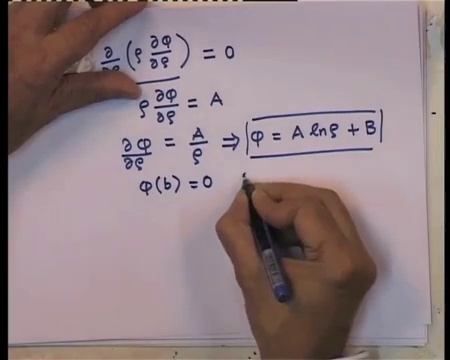 ∂/∂ρ (ρ ∂φ/∂ρ) = 0
ρ ∂φ/∂ρ = A
∂φ/∂ρ = A/ρ ⇒ φ = A lnρ + B
φ(b) = 0